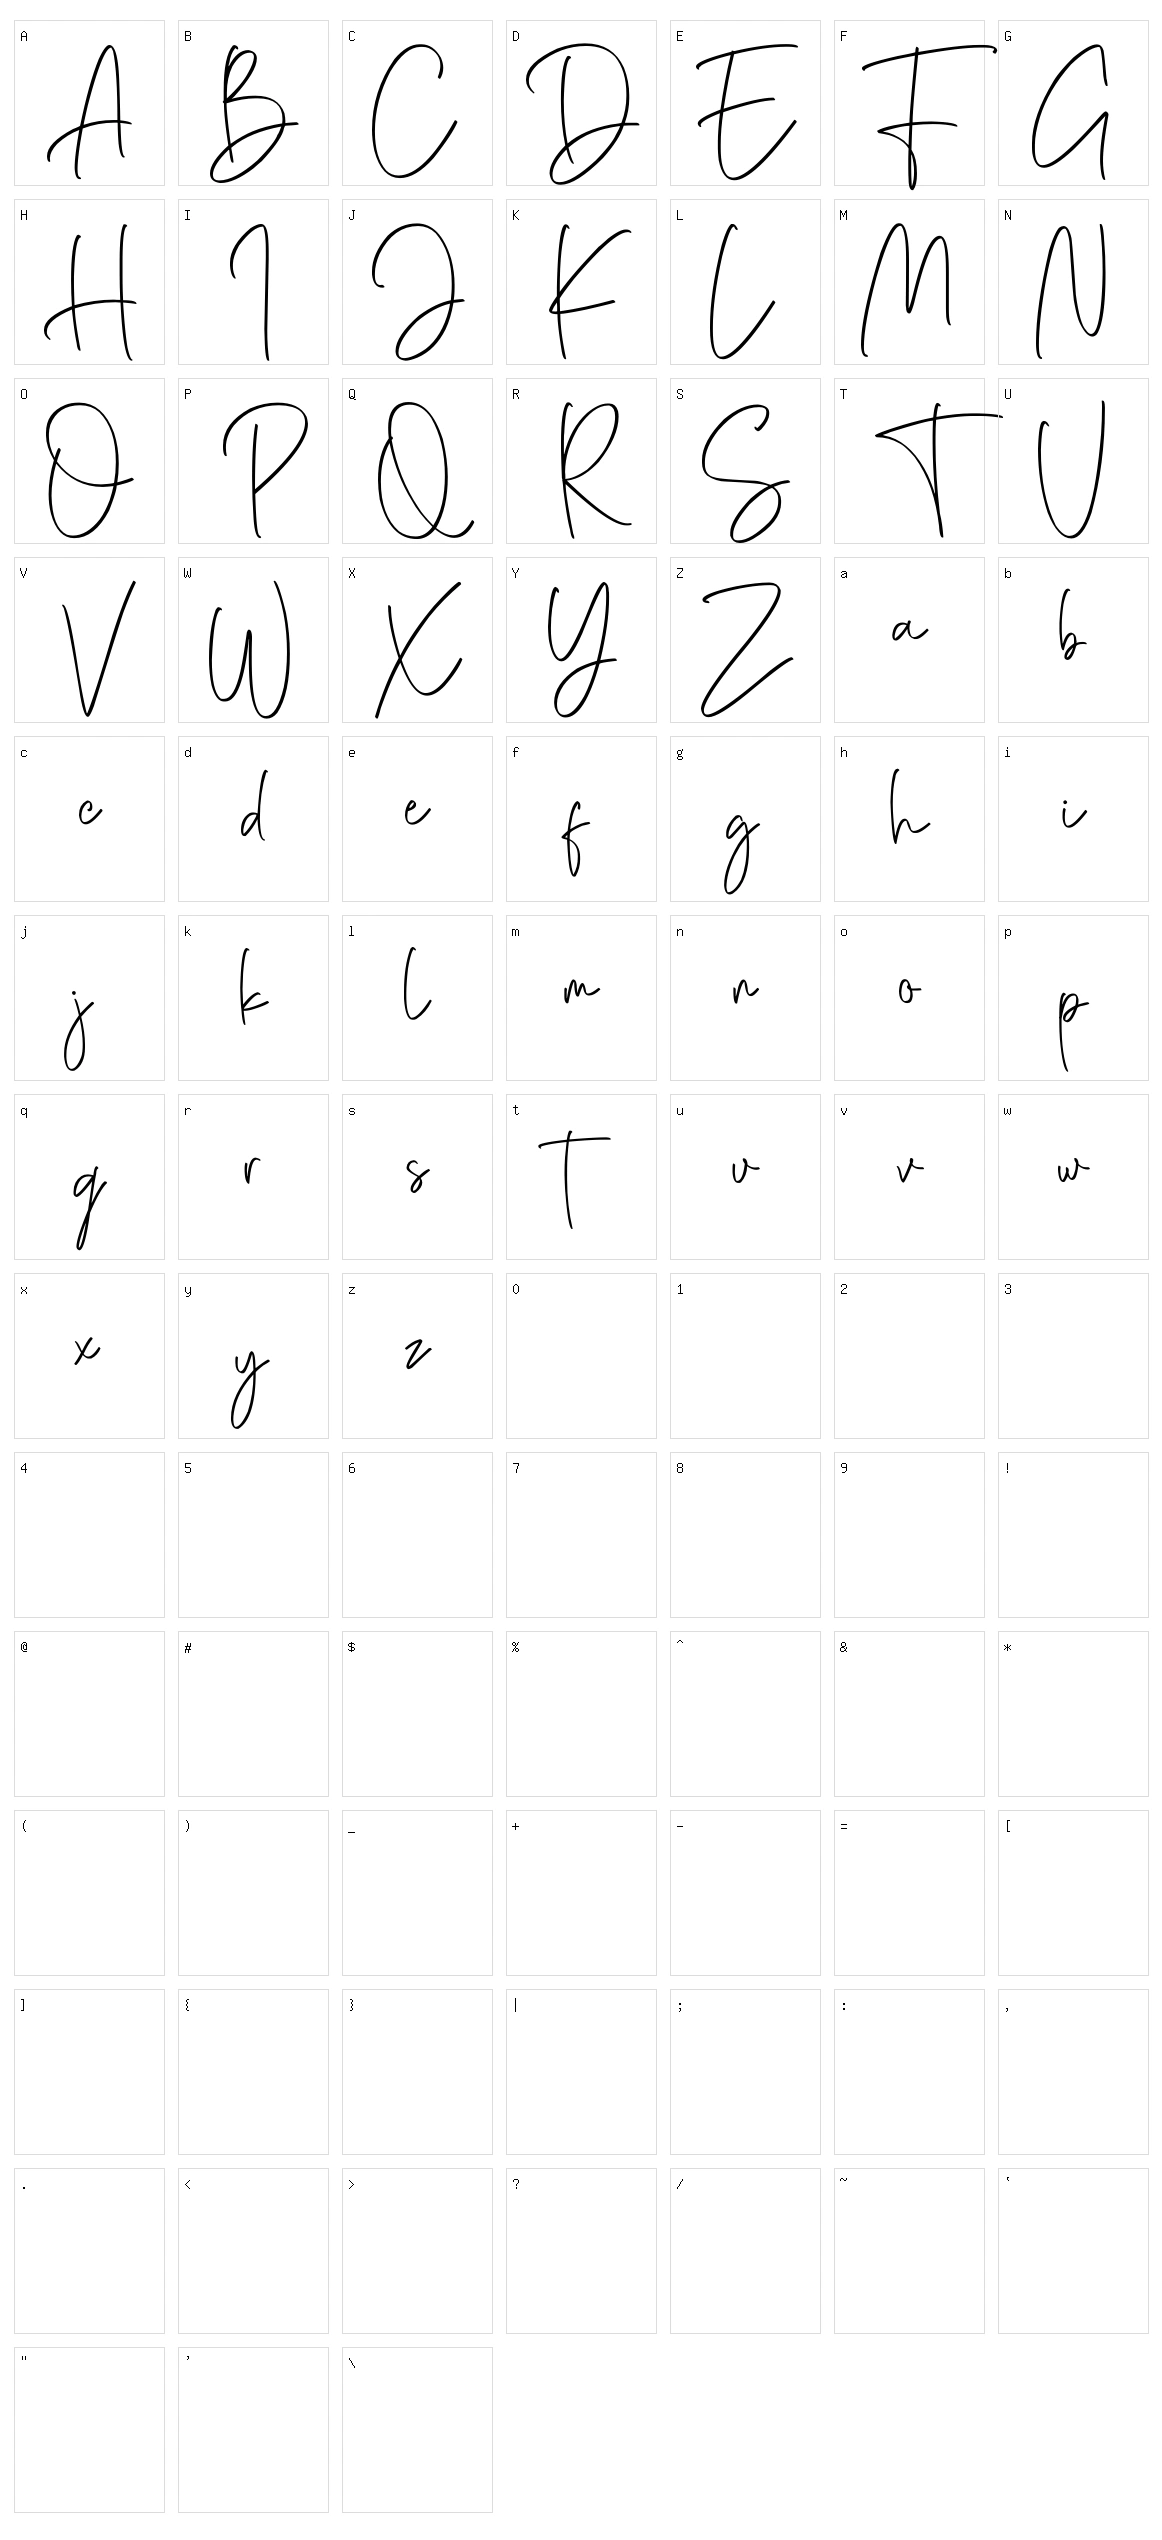 A B C D E F G
A B C D E F G
H I J K L M N
H I J K L M N
O P Q R S T U
O P Q R S T U
V W X Y Z a b
V W X Y Z a b
c d e f g h i
c d e f g h i
j k l m n o p
j k l m n o p
q r s t u v w
q r s t u v w
x y z 0 1 2 3
x y z
4 5 6 7 8 9 !
@ # $ % ^ & *
( ) _ + - = [
] { } | ; : ,
. < > ? / ~ ‛
" ’ \